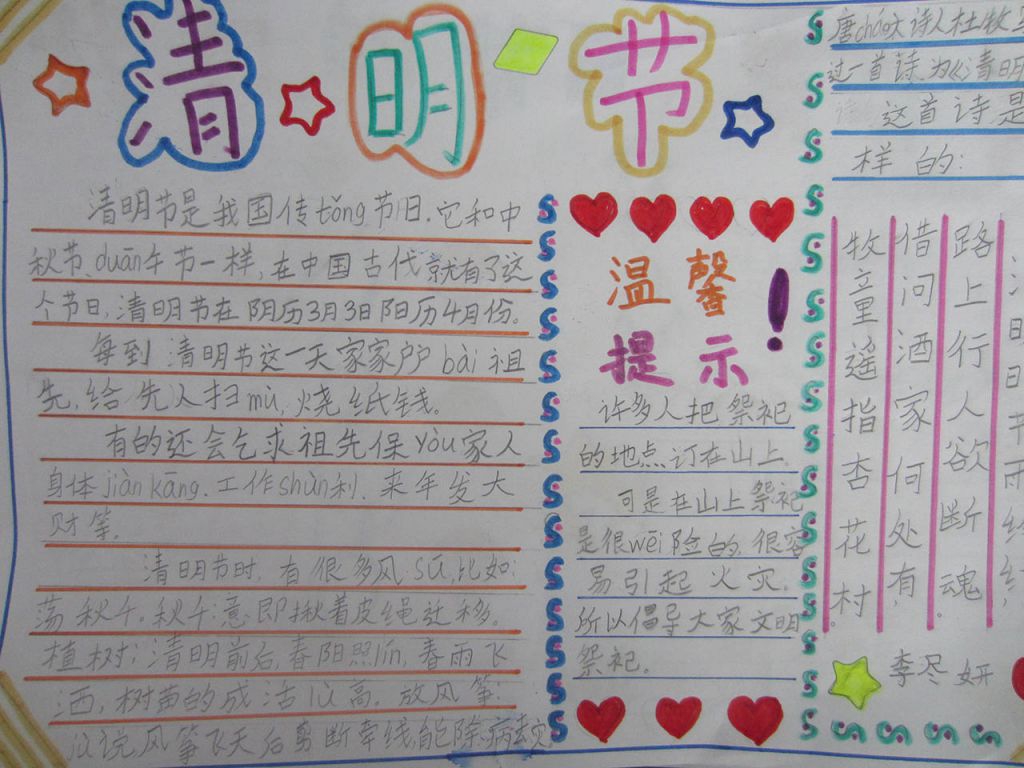 清明节
清明节是我国传tǒng节日.它和中
秋节、duān午节一样,在中国古代就有了这
个节日,清明节在阴历3月3日阳历4月份。
每到清明节这一天家家户户bài祖
先,给先人扫mù,烧纸钱。
有的还会乞求祖先保yòu家人
身体jiàn kāng.工作shùn利.来年发大
财等。
清明节时,有很多风sú,比如:
荡秋千。秋千:意即揪着皮绳迁移。
植树:清明前后,春阳照lín,春雨飞
洒,树苗的成活lǜ高.放风筝:
jù说风筝飞天后剪断牵线,能除病去灾
温馨
提示!
许多人把祭祀
的地点订在山上。
可是在山上祭祀
是很wēi险的很容
易引起火灾.
所以倡导大家文明
祭祀。
唐cháo大诗人杜牧
过一首诗.为《清明
这首诗是
样的:
路上行人欲断魂。
借问酒家何处有,
牧童遥指杏花村。
李尽妍